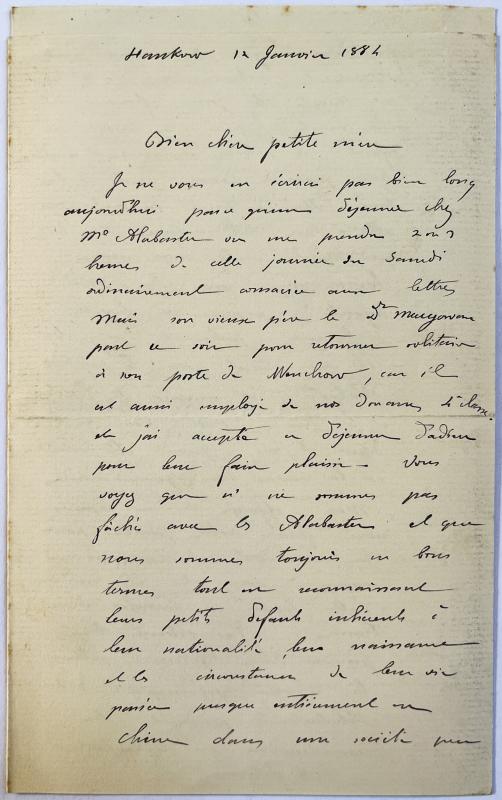 Hankow 12 Janvier 1884
Bien chère petite mère
Je ne vous en écrirai pas bien long
aujourd'hui parce qu'un déjeuner chez
Mo Alabaster va me prendre 2 ou 3
heures de cette journée du Samedi
ordinairement consacrée aux lettres
Mais son vieux père le Dr Macgowan
part ce soir pour retourner solitaire
à son poste de Wenchow, car il
est aussi employé de nos douanes 4e classe.
et j'ai accepté ce déjeuner d'adieu
pour leur faire plaisir – Vous
voyez que n/ ne sommes pas
fâchés avec les Alabaster et que
nous sommes toujours en bons
termes tout en reconnaissant
leurs petits défauts inhérents à
leur nationalité, leur naissance
et les circonstances de leur vie
passée presque entièrement en
Chine dans une société peu